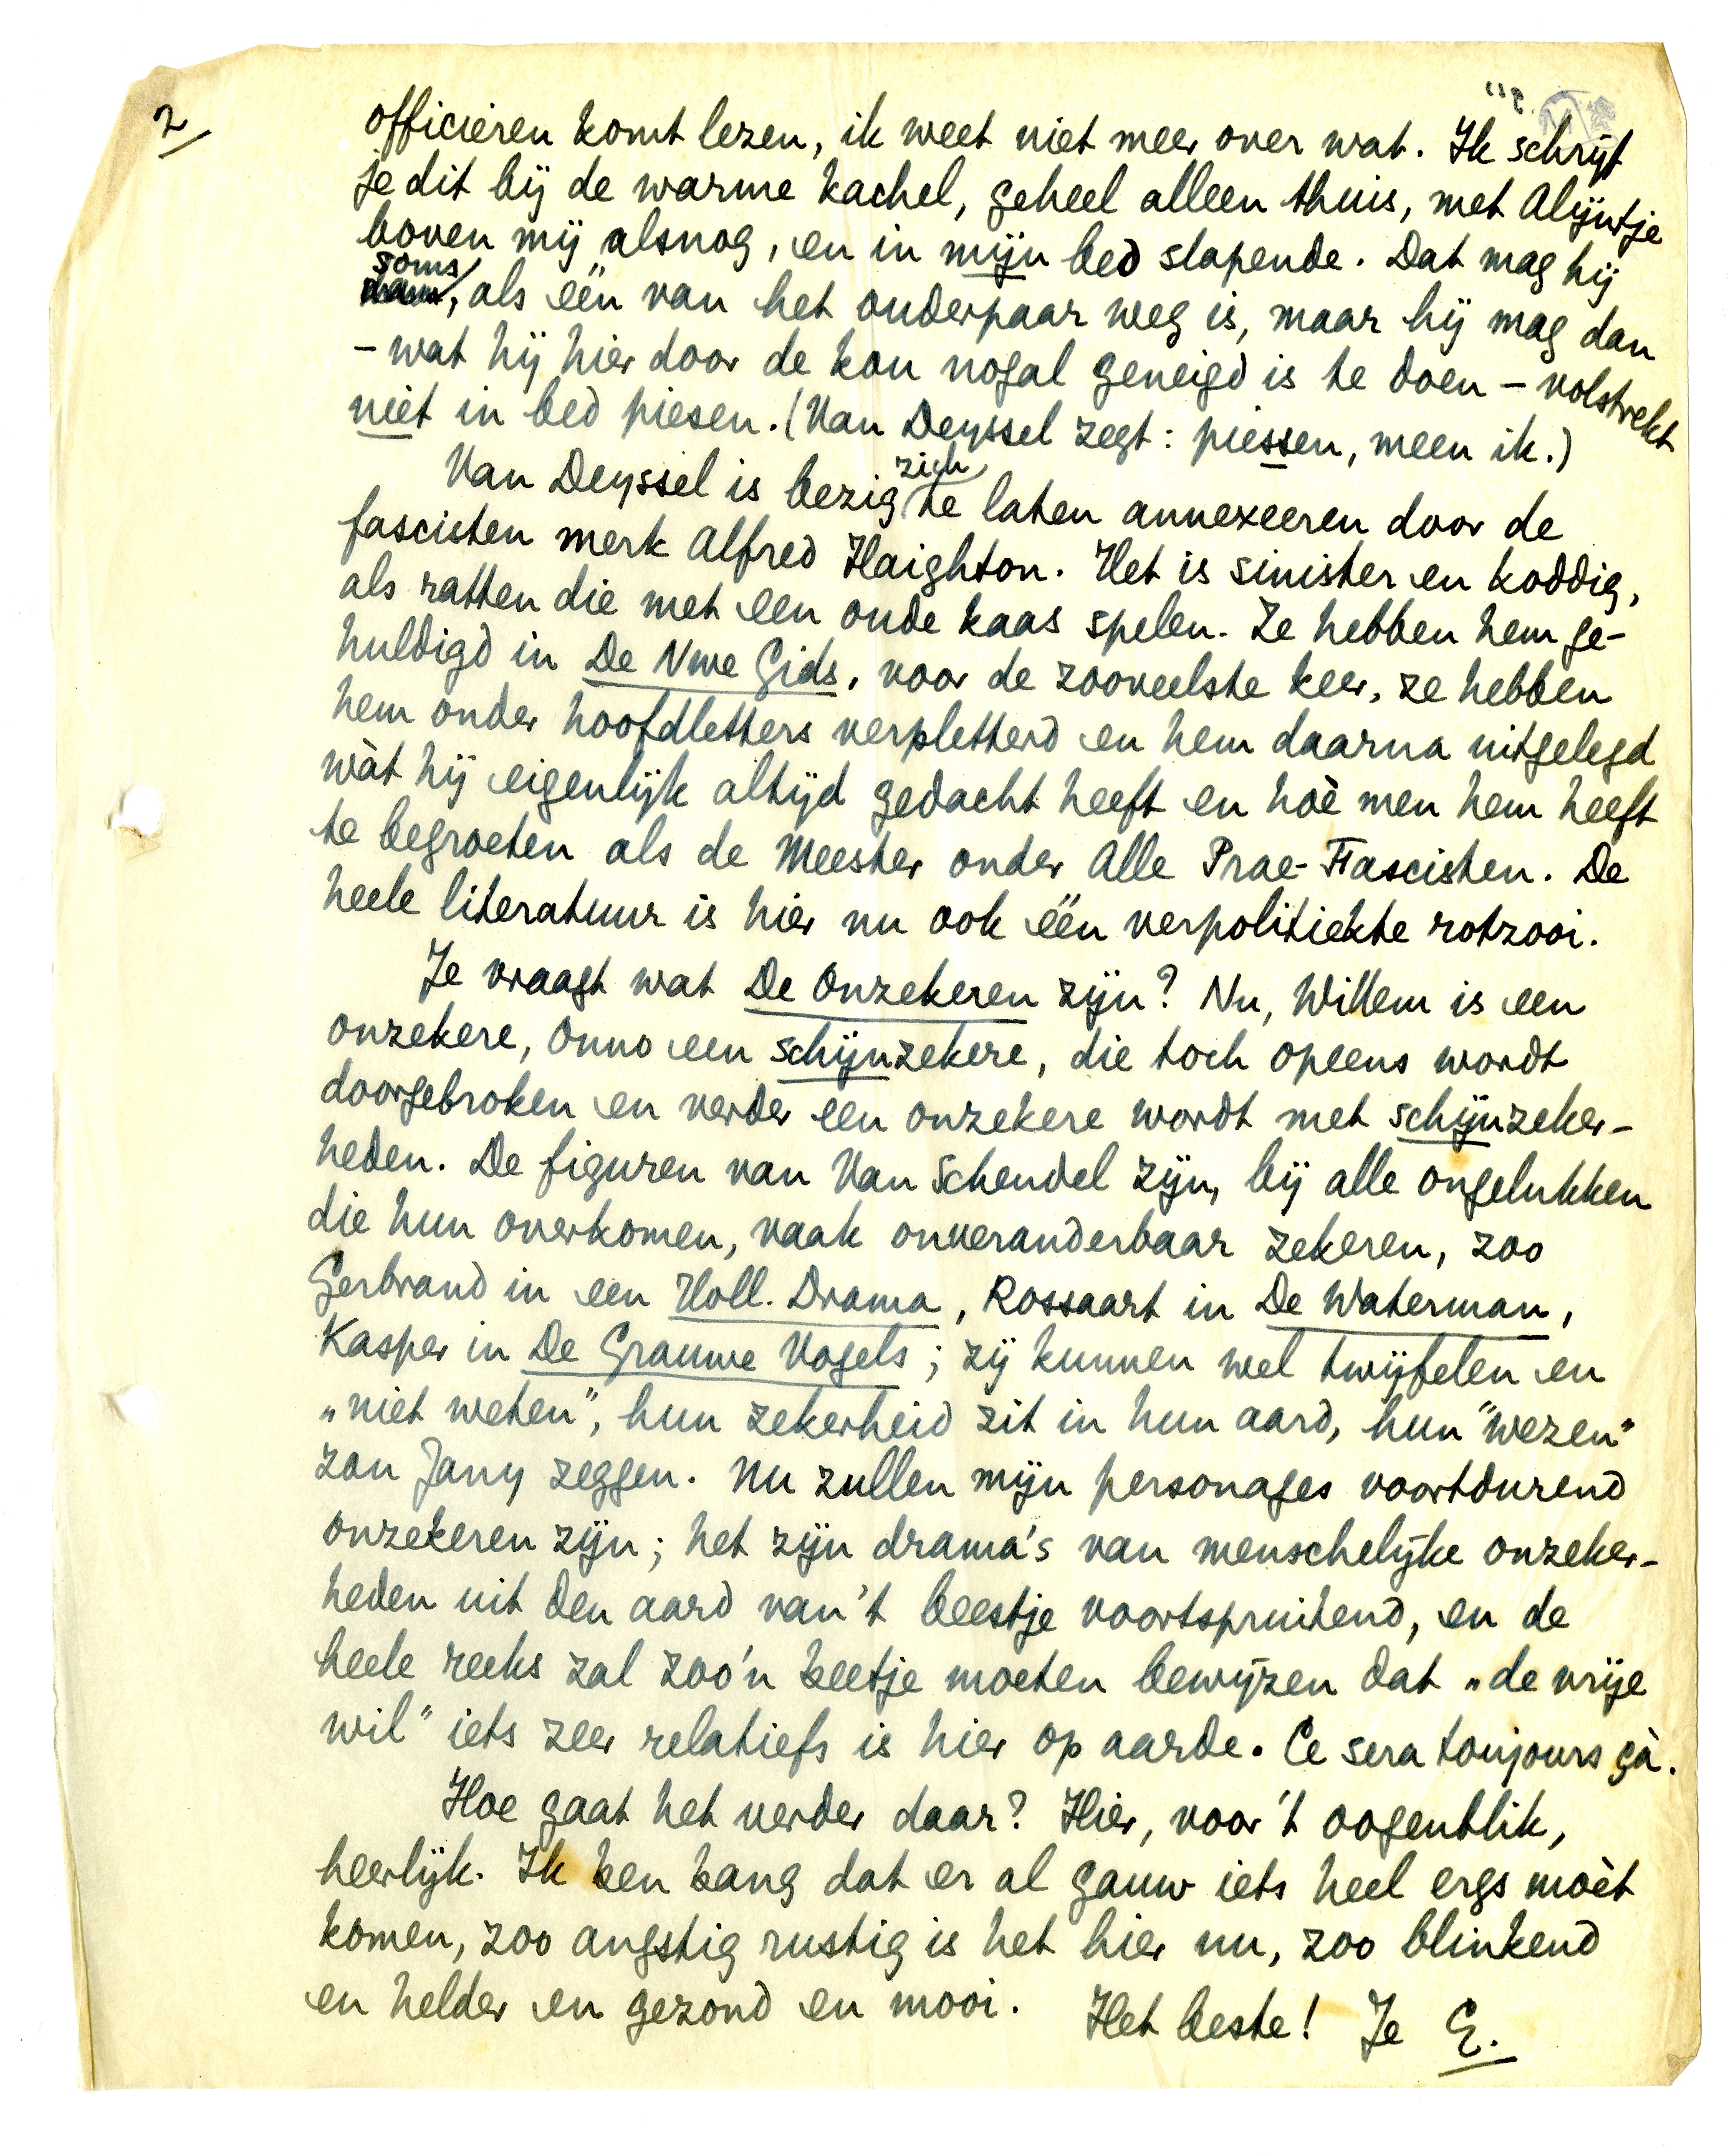 2/
officieren komt lezen, ik weet niet meer over wat. Ik schrijf
je dit bij de warme kachel, geheel alleen thuis, met Alijntje
boven mij alsnog, en in mijn bed slapende. Dat mag hij
soms, als één van het ouderpaar weg is, maar hij mag dan
– wat hij hier door de kou nogal geneigd is te doen – volstrekt
niet in bed piesen. (Van Deyssel zegt: piessen, meen ik.)
Van Deyssel is bezig zich te laten annexeeren door de
fascisten merk Alfred Haighton. Het is sinister en koddig,
als ratten die met een oude kaas spelen. Ze hebben hem ge-
huldigd in De Nwe Gids, voor de zooveelste keer, ze hebben
hem onder hoofdletters verpletterd en hem daarna uitgelegd
wàt hij eigenlijk altijd gedacht heeft en hoè men hem heeft
te begroeten als de Meester onder Alle Prae-Fascisten. De
heele literatuur is hier nu ook één verpolitiekte rotzooi.
Je vraagt wat De Onzekeren zijn? Nu, Willem is een
onzekere, Onno een schijnzekere, die toch opeens wordt
doorgebroken en verder een onzekere wordt met schijnzeker-
heden. De figuren van Van Schendel zijn, bij alle ongelukken
die hun overkomen, vaak onveranderbaar zekeren, zoo
Gerbrand in een Holl. Drama, Rossaart in De Waterman,
Kasper in De Grauwe Vogels; zij kunnen wel twijfelen en
„niet weten", hun zekerheid zit in hun aard, hun "wezen"
zou Jany zeggen. Nu zullen mijn personages voortdurend
onzekeren zijn; het zijn drama's van menschelijke onzeker-
heden uit den aard van 't beestje voortspruitend, en de
heele reeks zal zoo'n beetje moeten bewijzen dat „de vrije
wil" iets zeer relatiefs is hier op aarde. Ce sera toujours çà.
Hoe gaat het verder daar? Hier, voor 't oogenblik,
heerlijk. Ik ben bang dat er al gauw iets heel ergs moèt
komen, zoo angstig rustig is het hier nu, zoo blinkend
en helder en gezond en mooi. Het beste! Je E.